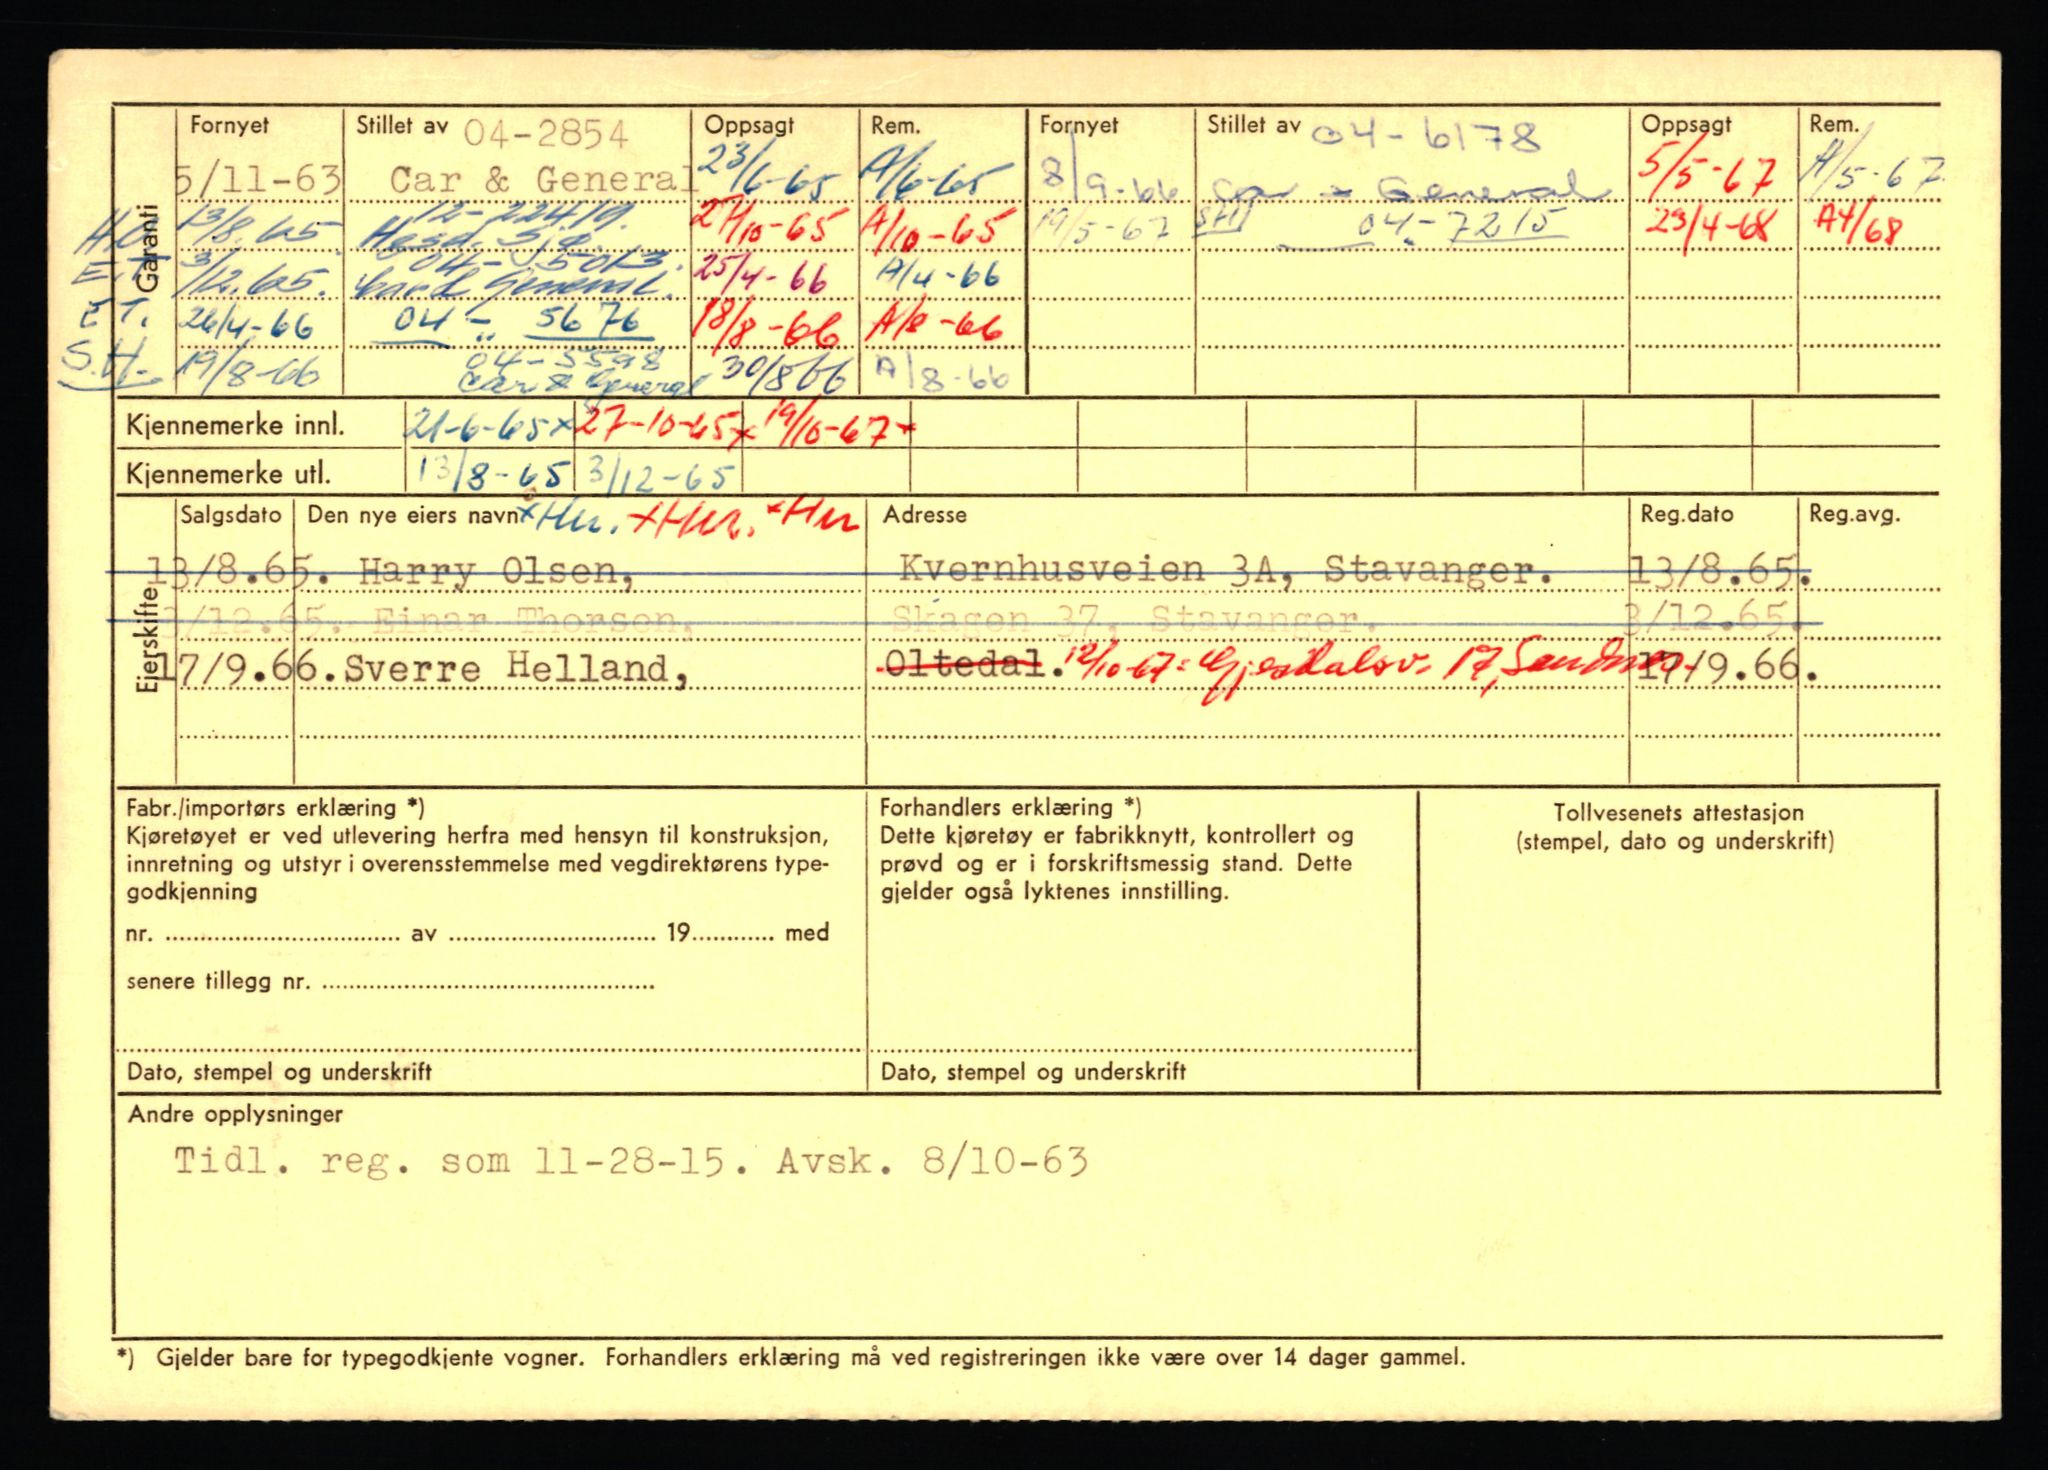 Fornyet Stillet av 04-2854 Oppsagt Rem. Fornyet Stillet av 04-6178 Oppsagt Rem.
Garanti
5/11-63 Car & General 23/6-65 A/6-65 8/9-66 Car - General 5/5-67 A/5-67
12-22419.
H.O. 13/8.65. 27/10-65 A/10-65 19/5-67 04-7215 23/4-68 A4/68
04-5013.
E.T. 3/12.65. General. 25/4-66 A/4-66
E.T. 26/4-66 04 - " 5676 18/8-66 A/8-66
04-5598
S.H. 19/8-66 Car & General 30/8 66 A/8-66
Kjennemerke innl. 21-6-65x 27-10-65x 19/10-67x
Kjennemerke utl. 13/8-65 3/12-65
Eierskifte
Salgsdato Den nye eiers navn xHn. xHn. xHn Adresse Reg.dato Reg.avg.
13/8.65. Harry Olsen, Kvernhusveien 3A, Stavanger. 13/8.65.
3/12.65. Einar Thorsen, Skagen 37, Stavanger. 3/12.65.
17/9.66. Sverre Helland, Oltedal. 12/10-67= Gjesdalsv. 17, Sandnes. 17/9.66.
Fabr./importørs erklæring *)
Kjøretøyet er ved utlevering herfra med hensyn til konstruksjon,
innretning og utstyr i overensstemmelse med vegdirektørens type-
godkjenning
nr. ........ av ........ 19........ med
senere tillegg nr. ........
Dato, stempel og underskrift
Forhandlers erklæring *)
Dette kjøretøy er fabrikknytt, kontrollert og
prøvd og er i forskriftsmessig stand. Dette
gjelder også lyktenes innstilling.
Dato, stempel og underskrift
Tollvesenets attestasjon
(stempel, dato og underskrift)
Andre opplysninger
Tidl. reg. som 11-28-15. Avsk. 8/10-63
*) Gjelder bare for typegodkjente vogner. Forhandlers erklæring må ved registreringen ikke være over 14 dager gammel.